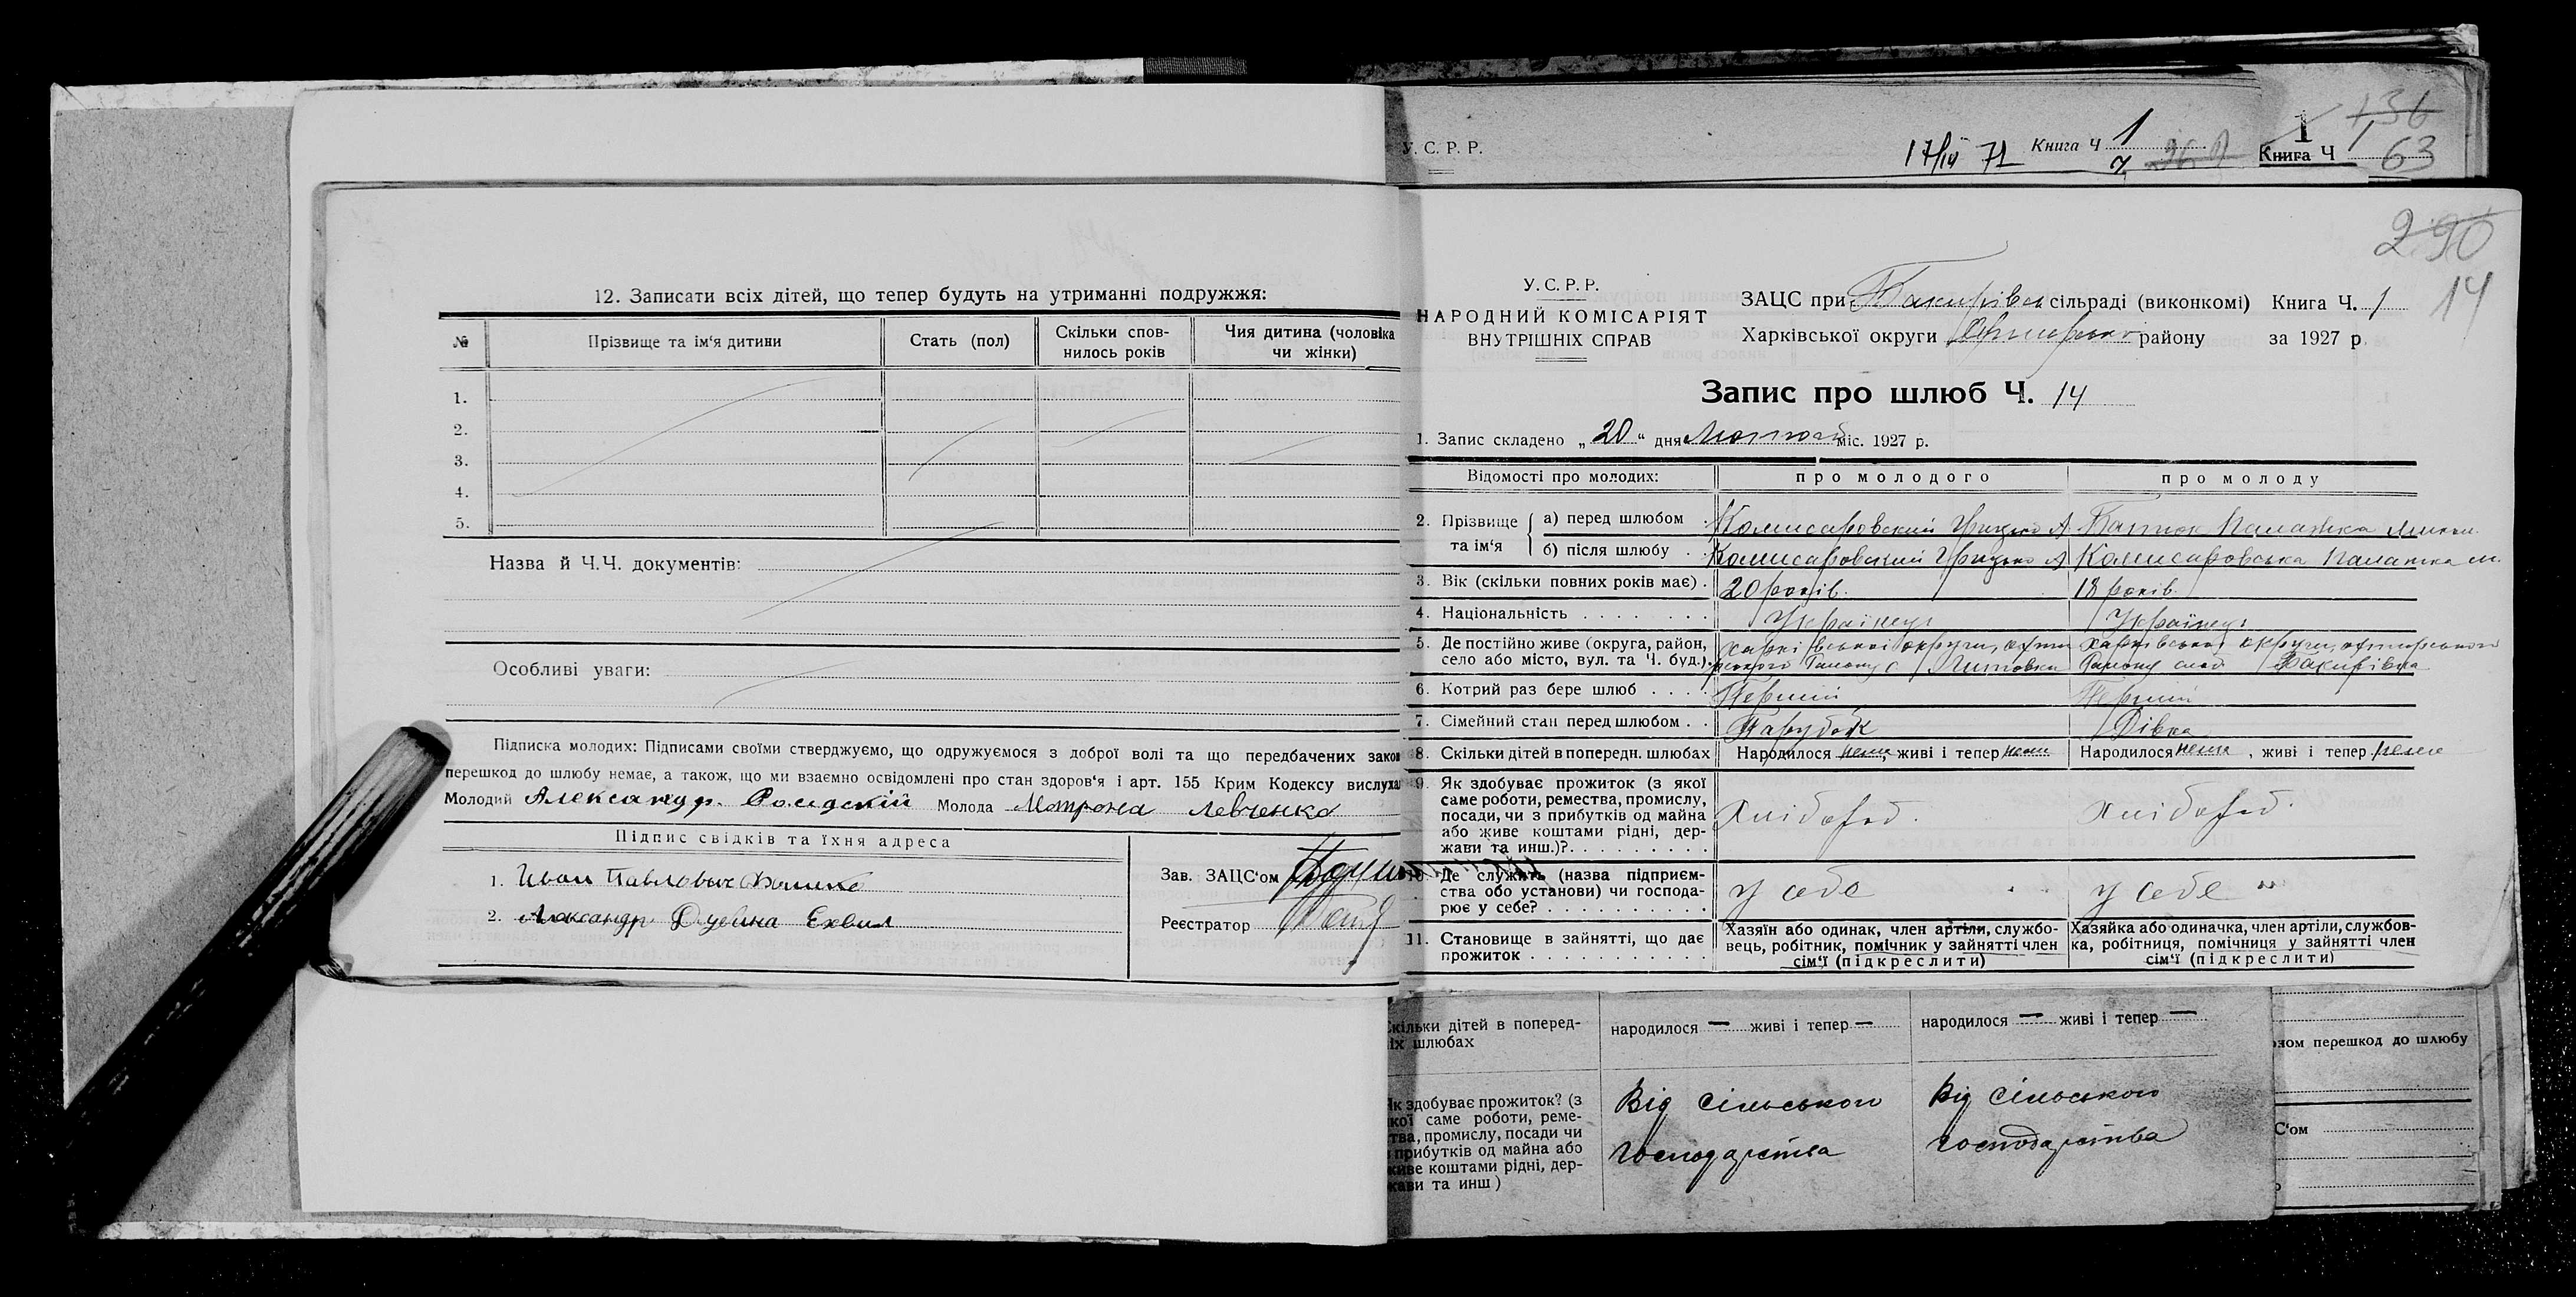 У. С. Р. Р.
17/IV 71 Книга Ч 1
1
Книга Ч 1
136
63
12. Записати всіх дітей, що тепер будуть на утриманні подружжя:
№ Прізвище та ім'я дитини Стать (пол) Скільки спов-нилось років Чия дитина (чоловіка чи жінки)
1.
2.
3.
4.
5.
Назва й Ч.Ч. документів:
Особливі уваги:
Підписка молодих: Підписами своїми стверджуємо, що одружуємося з доброї волі та що передбачених закон
перешкод до шлюбу немає, а також, що ми взаємно освідомлені про стан здоров'я і арт. 155 Крим Кодексу вислуха
Молодий Александр. Молода Мотрона Левченко
Підпис свідків та їхня адреса
1. Иван Павлович
2. Александр
Зав. ЗАЦС'ом
Реєстратор
290
14
У. С. Р. Р.
НАРОДНИЙ КОМІСАРІЯТ
ВНУТРІШНІХ СПРАВ
ЗАЦС при Бакирівск сільраді (виконкомі) Книга Ч. 1
Харківської округи району за 1927 р
Запис про шлюб Ч. 14
1. Запис складено „ 20 " дня Лютого міс. 1927 р.
Відомості про молодих: про молодого про молоду
2. Прізвище та ім'я а) перед шлюбом Комисаровский Грицько А. Батюк Палажка
б) після шлюбу Комисаровский Грицько А Комисаровська Палажка М.
3. Вік (скільки повних років має) 20 років. 18 років.
4. Національність Українець Українець
5. Де постійно живе (округа, район, Харківської округи, охти Харківської округи, охтирського
село або місто, вул. та Ч. буд.). рського Району с Литовка Району слоб Бакирівка
6. Котрий раз бере шлюб Перший Перший
7. Сімейний стан перед шлюбом Парубок Дівка
8. Скільки дітей в попередн. шлюбах Народилося нема, живі і тепер нема Народилося нема, живі і тепер нема
9. Як здобуває прожиток (з якої
саме роботи, ремества, промислу,
посади, чи з прибутків од майна Хлібороб. Хлібороб.
або живе коштами рідні, дер-
жави та инш.)?
10. Де служить (назва підприєм-
ства обо установи) чи господа- у себе у себе
рює у себе?
11. Становище в зайнятті, що дає прожиток
Хазяїн або одинак, член артіли, службо-
вець, робітник, помічник у зайнятті член
сім'ї (підкреслити)
Хазяйка або одиначка, член артіли, службов-
ка, робітниця, помічниця у зайнятті член
сім'ї (підкреслити)
кільки дітей в поперед- народилося — живі і тепер — народилося — живі і тепер —
іх шлюбах
Як здобуває прожиток? (з
якої саме роботи, реме- Від сільського Від сільського
тва, промислу, посади чи
прибутків од майна або господарства господарства
живе коштами рідні, дер-
жави та инш)
ном перешкод до шлюбу
С'ом